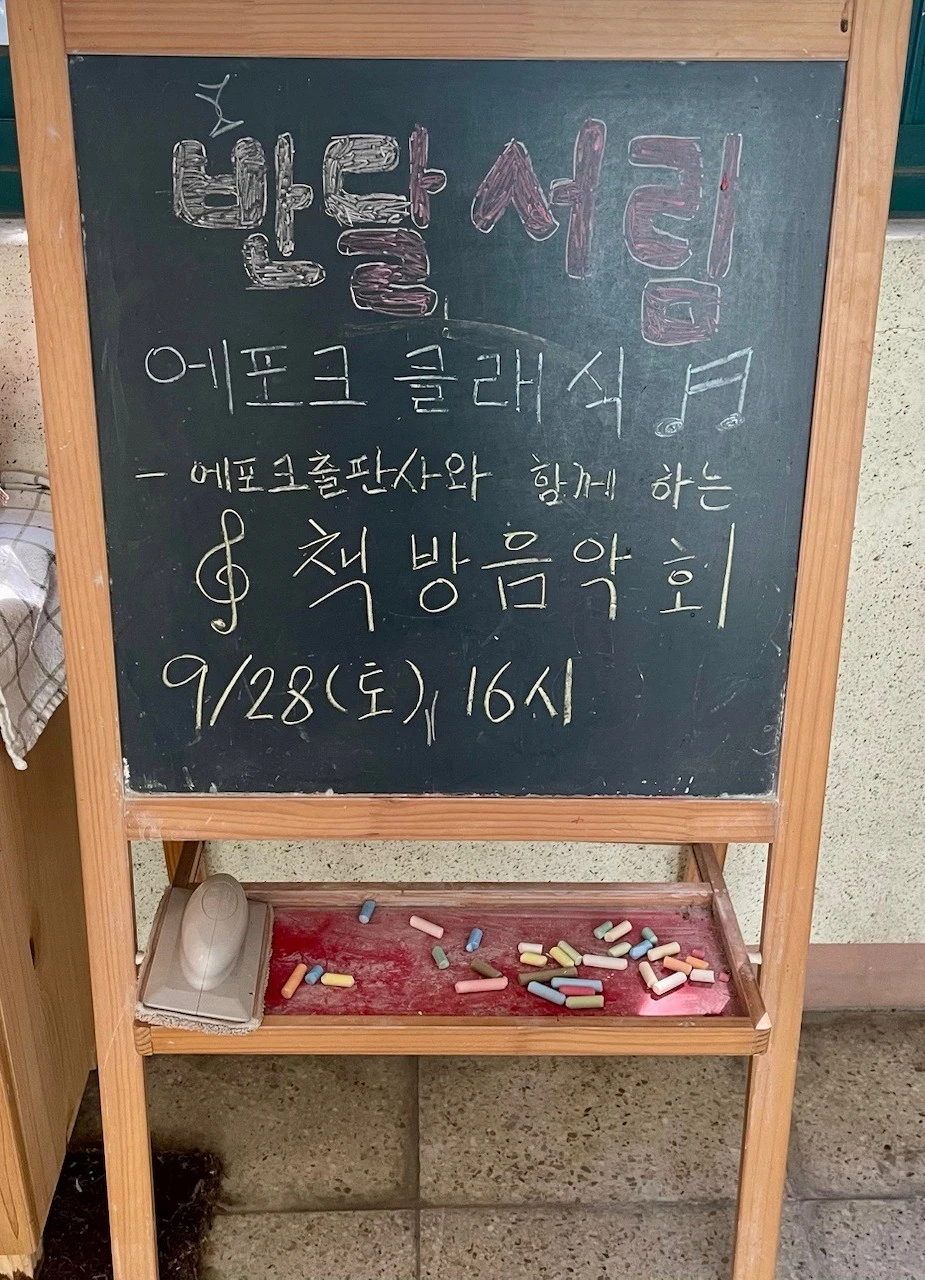 반달서림
에포크 클래식
- 에포크출판사와 함께 하는
책방음악회
9/28(토), 16시